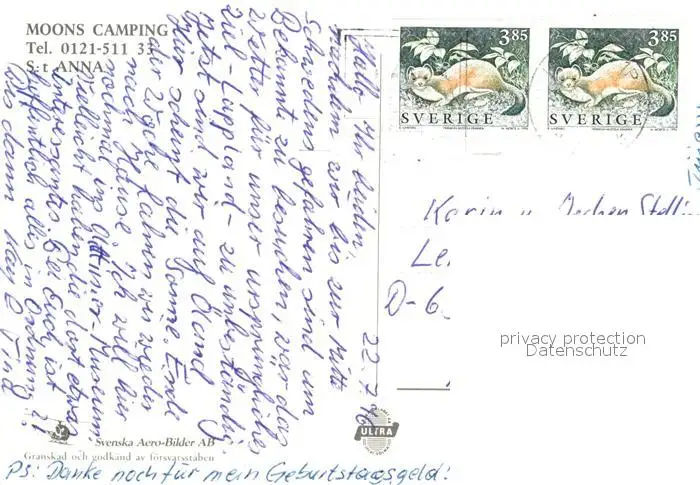 MOONS CAMPING
Tel. 0121-511 33
S:t ANNA
22.7.96
Hallo Ihr Lieben!
Nachdem wir bis zur Mitte
Schwedens gefahren sind um
Bekannte zu besuchen, war das
Wetter für unser ursprüngliches
Ziel-Lappland- zu unbeständig.
Jetzt sind wir auf Öland
Hier scheint die Sonne. Ende
der Woche fahren wir wieder
nach Hause. Ich will hier
nochmal ins Museum
vielleicht haben die dort etwas
Interessantes. Bei Euch ist
hoffentlich alles in Ordnung?!
Bis dann
Svenska Aero-Bilder AB
Granskad och godkänd av försvarsstaben
PS: Danke noch für mein Geburtstagsgeld!
ULTRA
3.85
SVERIGE
3.85
SVERIGE
Karin u. Jochen
Le
D-6
privacy protection
Datenschutz